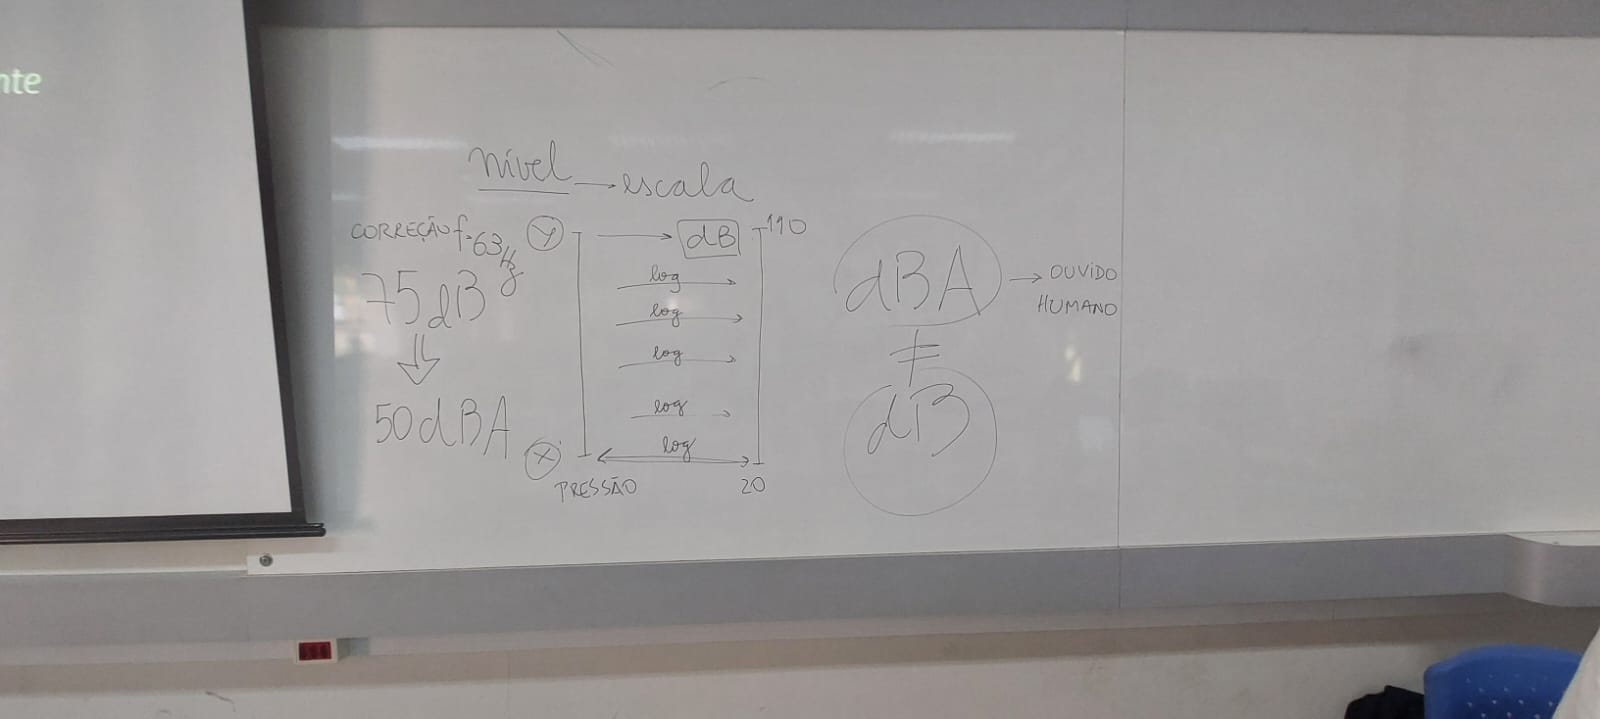 nte
nível → escala
CORREÇÃO f=63Hz
75dB
50dBA
Y
X
→ dB
log
log
log
log
log
PRESSÃO
110
20
dBA → OUVIDO
HUMANO
≠
dB